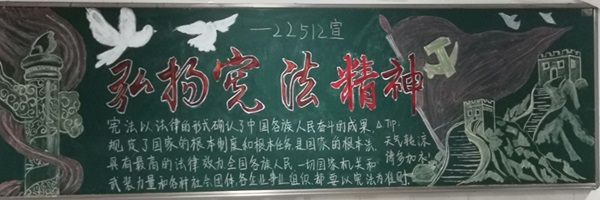 —22512宣
弘扬宪法精神
宪法以法律的形式确认了中国各族人民奋斗的成果,
规定了国家的根本制度和根本任务是国家的根本法,
具有最高的法律效力全国各族人民一切国家机关和
武装力量和各种社会团体,各企业事业组织都要以宪法为准则.
△TIP:
天气转凉
请多加衣